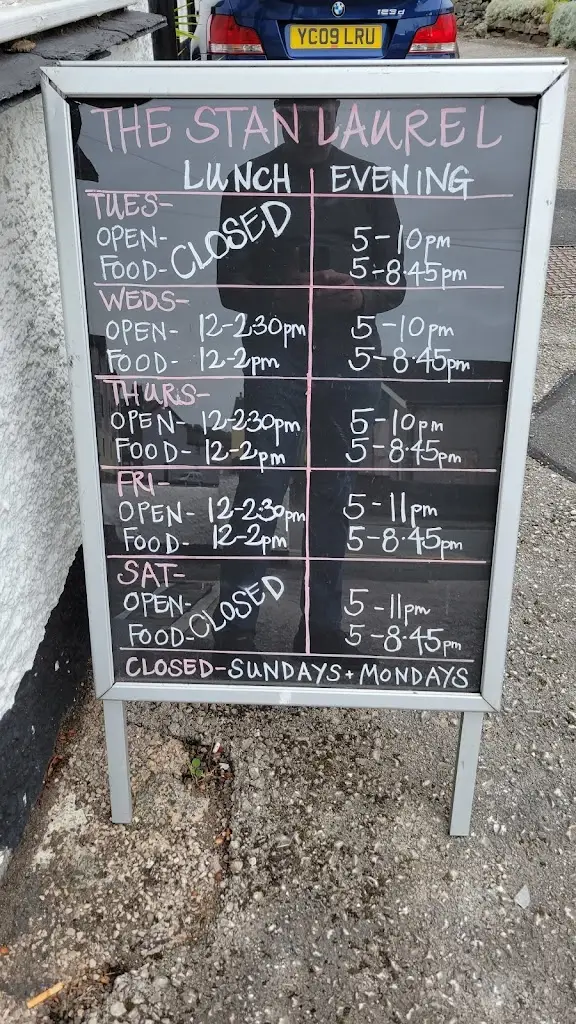 123d
YC09 LRU
THE STAN LAUREL
LUNCH EVENING
TUES-
OPEN- CLOSED 5-10pm
FOOD- 5-8.45pm
WEDS-
OPEN- 12-2:30pm 5-10pm
FOOD- 12-2pm 5-8.45pm
THURS-
OPEN- 12-2:30pm 5-10pm
FOOD- 12-2pm 5-8.45pm
FRI-
OPEN- 12-2:30pm 5-11pm
FOOD- 12-2pm 5-8.45pm
SAT-
OPEN- CLOSED 5-11pm
FOOD- 5-8.45pm
CLOSED-SUNDAYS+MONDAYS